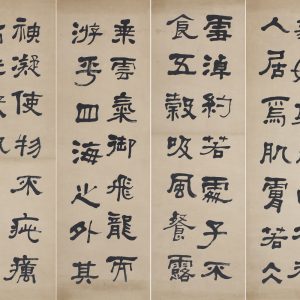 人居焉肌膚若仌
雪淖約若處子不
食五穀吸風餐露
乘雲氣御飛龍而
游乎四海之外其
神凝使物不疵癘